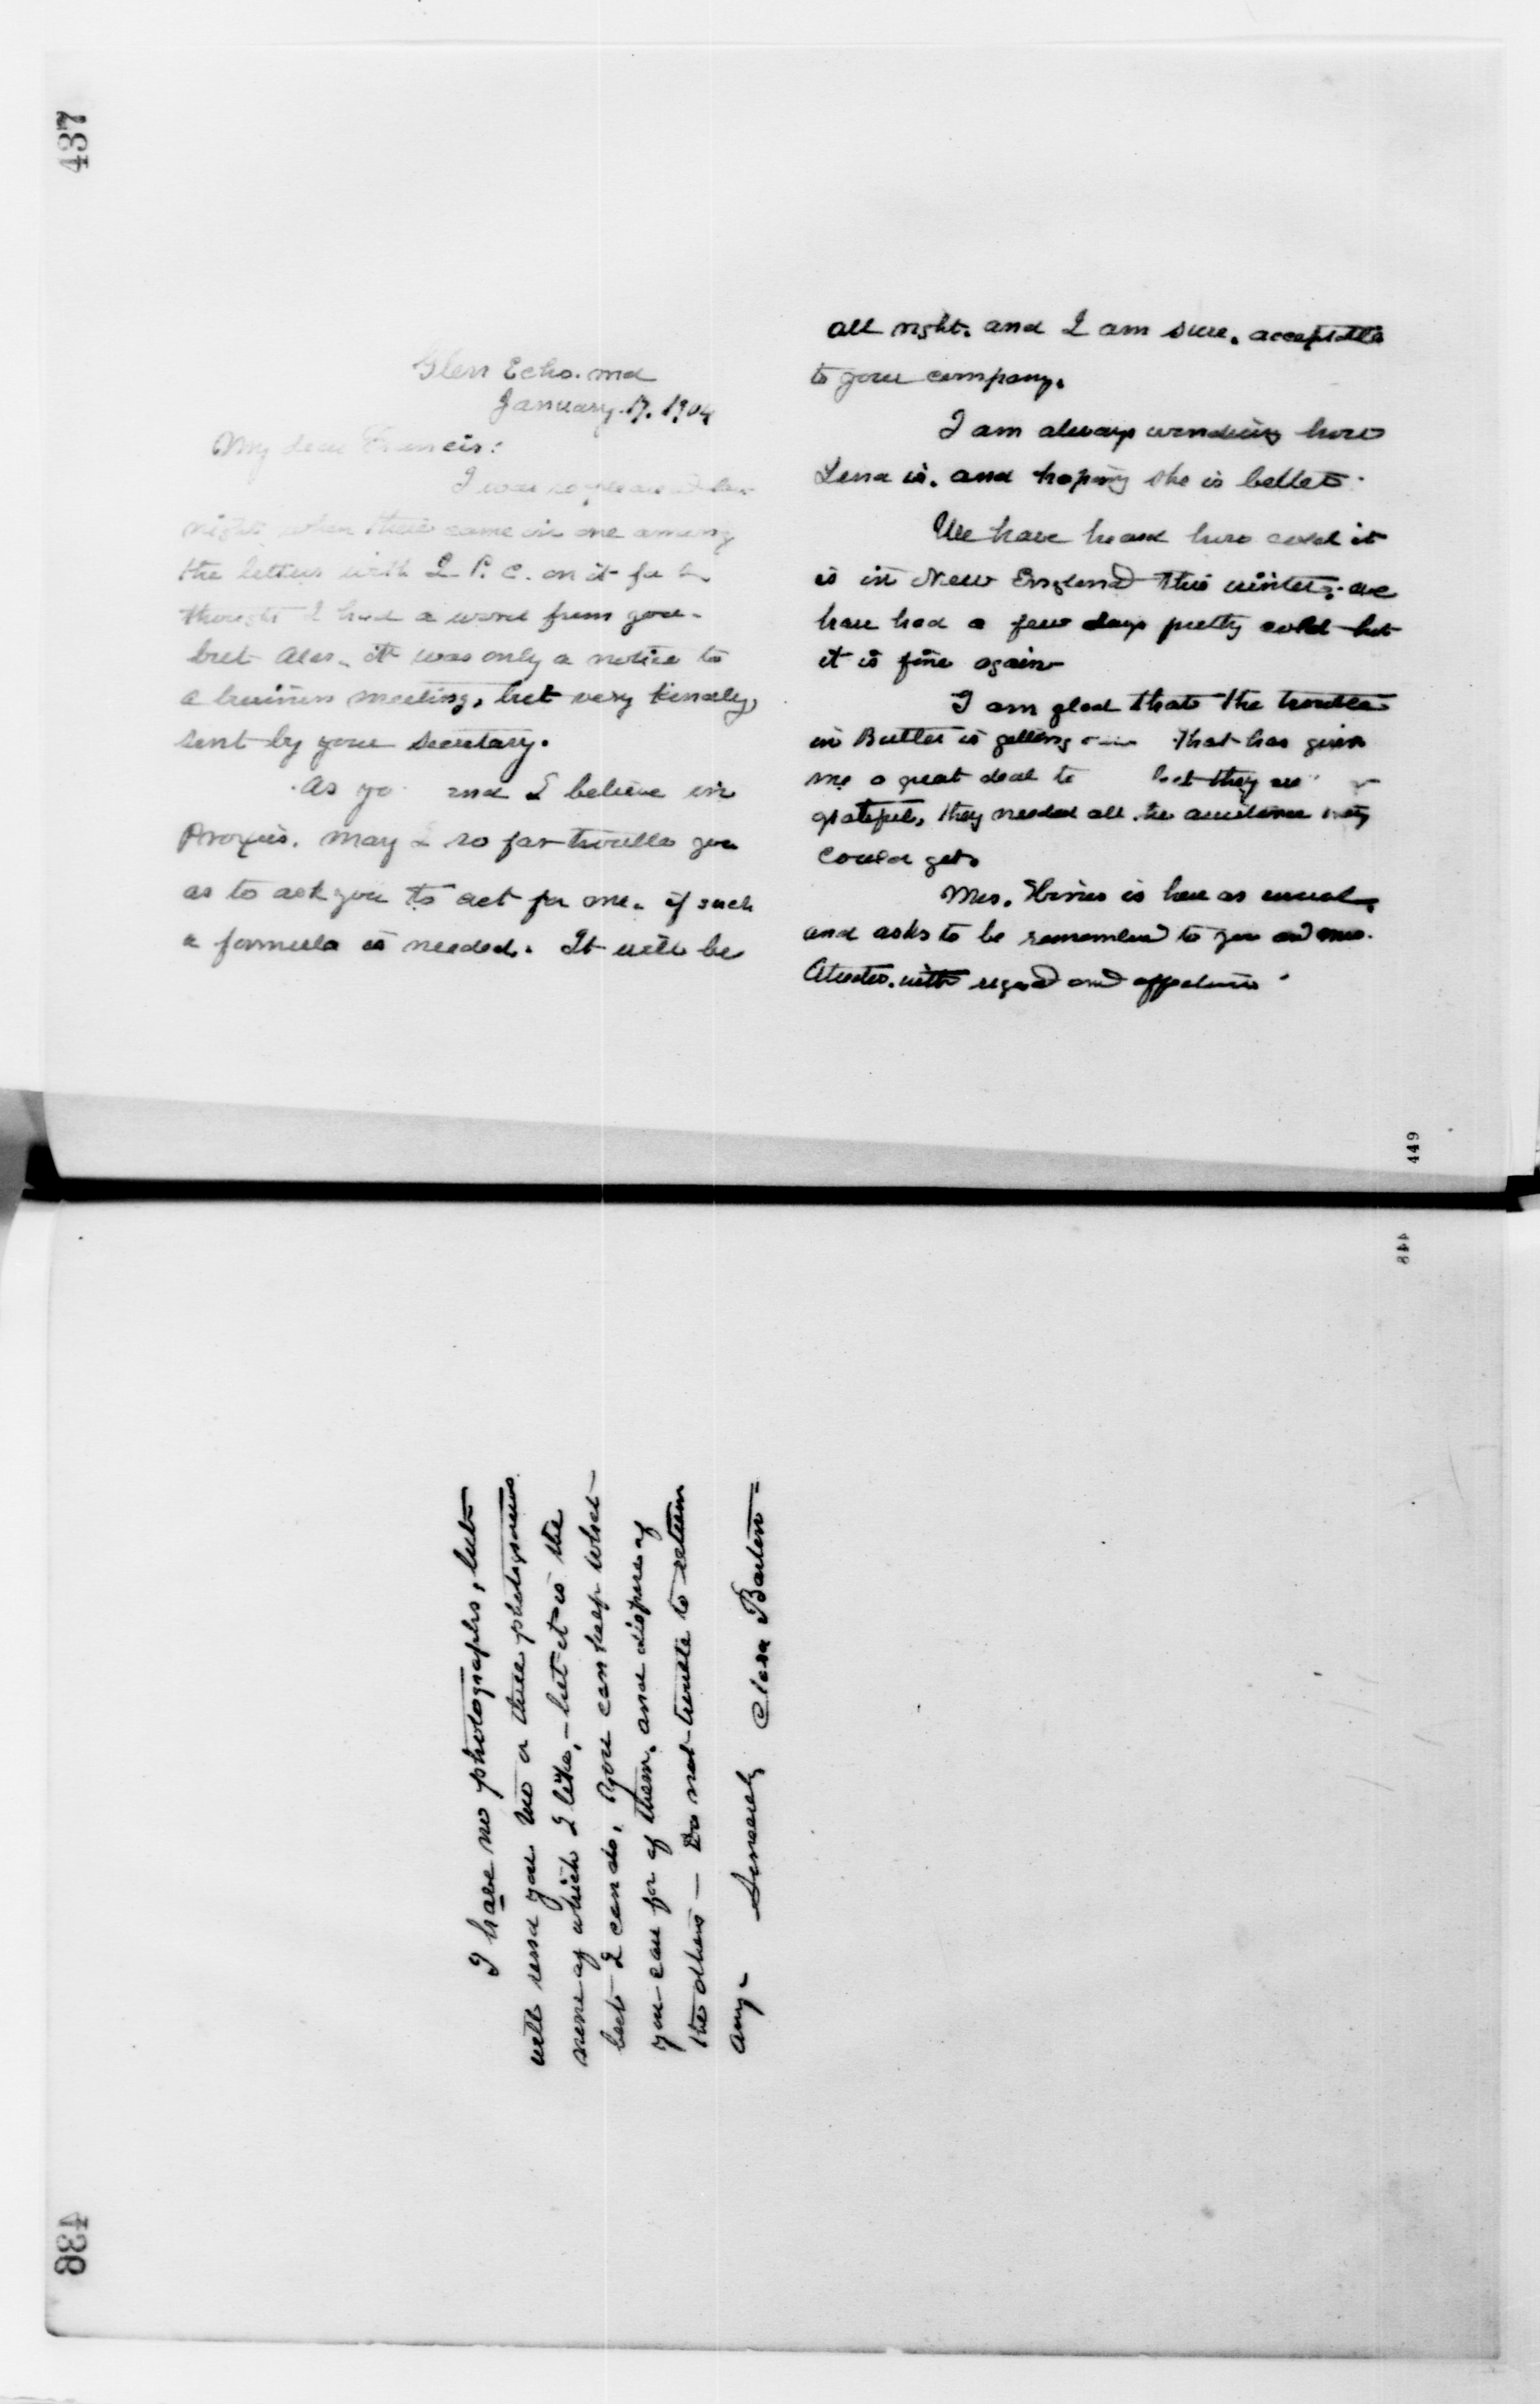 437
Glen Echo. Md
January. 17. 1904
My dear Francis:
I was so pleased last
night when there came in one among
the letters with L. P. C. on it for I
thought I had a word from you -
but alas - it was only a notice to
a business meeting, but very kindly,
sent by your Secretary.
As yo and I believe in
Proxies. may I so far trouble you
as to ask you to act for me. if such
a formula is needed. It will be
all right. and I am sure. acceptable
to your company.
I am always wondering how
Lena is. and hoping she is better.
We have heard how cold it
is in New England this winter. we
have had a few days pretty cold but
it is fine again
I am glad that the trouble
in Butler is getting That has given
me a great deal to but they are
grateful, they needed all the assistance they
could get.
Mrs. Hines is here as usual,
and asks to be remembered to you and Mrs.
Atwater. with regard and affection
449
448
I have no photographs, but
will send you two or three photogravures
none of which I like, - but it is the
best I can do. You can keep what
you care for of them. and dispose of
the others — Do not trouble to return
any -
Sincerely Clara Barton -
436